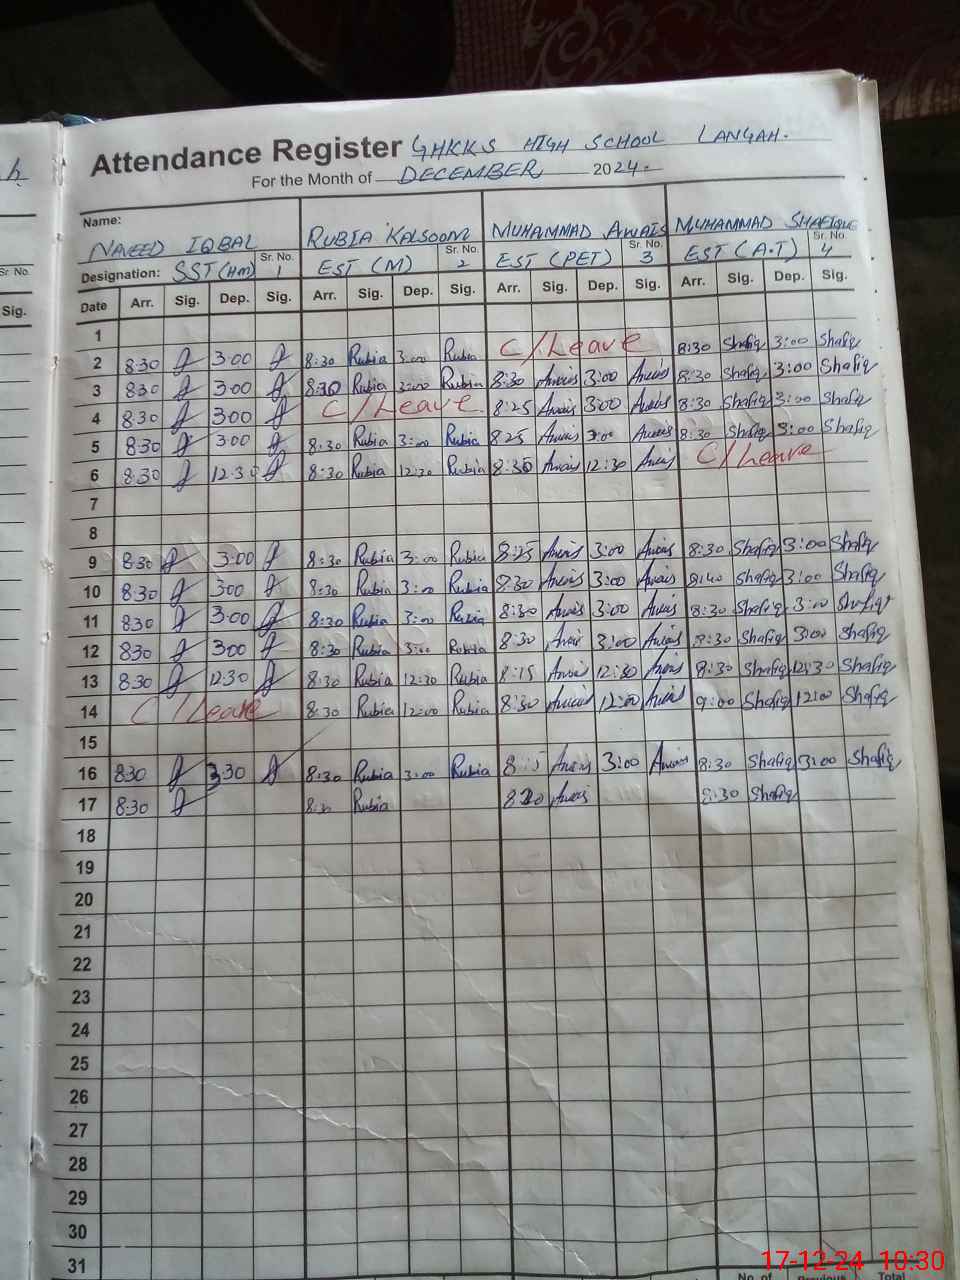 h
Attendance Register GHKKS HIGH SCHOOL LANGAH.
For the Month of DECEMBER 2024.
Name: NAVEED IQBAL RUBIA KALSOOM MUHAMMAD AWAIS MUHAMMAD SHAFIQUE
Designation: SST (HM) Sr. No. 1 EST (M) Sr. No. 2 EST (PET) Sr. No. 3 EST (A.T) Sr. No. 4
Sr. No.
Sig.
Date Arr. Sig. Dep. Sig. Arr. Sig. Dep. Sig. Arr. Sig. Dep. Sig. Arr. Sig. Dep. Sig.
1
2 8:30 3:00 8:30 Rubia 3:00 Rubia C/Leave 8:30 Shafiq 3:00 Shafiq
3 8:30 3:00 8:30 Rubia 3:00 Rubia 8:30 Awais 3:00 Awais 8:30 Shafiq 3:00 Shafiq
4 8:30 3:00 C/Leave 8:25 Awais 3:00 Awais 8:30 Shafiq 3:00 Shafiq
5 8:30 3:00 8:30 Rubia 3:00 Rubia 8:25 Awais 3:00 Awais 8:30 Shafiq 3:00 Shafiq
6 8:30 12:30 8:30 Rubia 12:30 Rubia 8:30 Awais 12:30 Awais C/Leave
7
8
9 8:30 3:00 8:30 Rubia 3:00 Rubia 8:25 Awais 3:00 Awais 8:30 Shafiq 3:00 Shafiq
10 8:30 3:00 8:30 Rubia 3:00 Rubia 8:30 Awais 3:00 Awais 8:40 Shafiq 3:00 Shafiq
11 8:30 3:00 8:30 Rubia 3:00 Rubia 8:30 Awais 3:00 Awais 8:30 Shafiq 3:00 Shafiq
12 8:30 3:00 8:30 Rubia 3:00 Rubia 8:30 Awais 3:00 Awais 8:30 Shafiq 3:00 Shafiq
13 8:30 12:30 8:30 Rubia 12:30 Rubia 8:15 Awais 12:30 Awais 8:30 Shafiq 12:30 Shafiq
14 C/Leave 8:30 Rubia 12:00 Rubia 8:30 Awais 12:00 Awais 9:00 Shafiq 12:00 Shafiq
15
16 8:30 3:30 8:30 Rubia 3:00 Rubia Awais 3:00 Awais 8:30 Shafiq 3:00 Shafiq
17 8:30 8:30 Rubia 8:20 Awais 8:30 Shafiq
18
19
20
21
22
23
24
25
26
27
28
29
30
31
No. of Previous Total
17-12-24 10:30